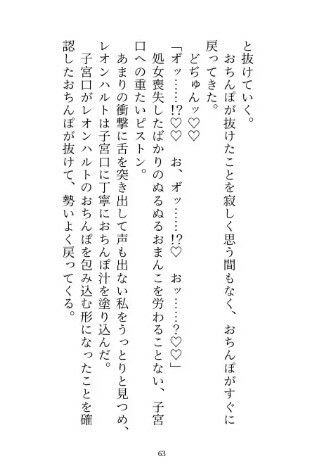 と抜けていく。
　おちんぽが抜けたことを寂しく思う間もなく、おちんぽがすぐに
戻ってきた。
　どぢゅんッ♡♡
「オ゛ッ……!?♡♡　お、オ゛ッ……!?♡　おッ……？♡♡」
　処女喪失したばかりのぬるぬるおまんこを労わることない、子宮
口への重たいピストン。
　あまりの衝撃に舌を突き出して声も出ない私をうっとりと見つめ、
レオンハルトは子宮口に丁寧におちんぽ汁を塗り込んだ。
　子宮口がレオンハルトのおちんぽを包み込む形になったことを確
認したおちんぽが抜けて、勢いよく戻ってくる。
63